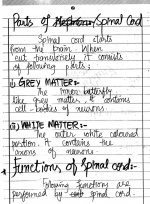 Parts of Spinal Cord
Spinal cord starts
from the brain. When
cut transversely it consists
of following parts;
i) GREY MATTER:-
The inner butterfly
like grey matter, it contains
cell - bodies of neurons
ii) WHITE MATTER:-
The outer white coloured
portion. It contains the
axons of neurons.
Functions of Spinal cord:-
Following functions are
performed by spinal cord.